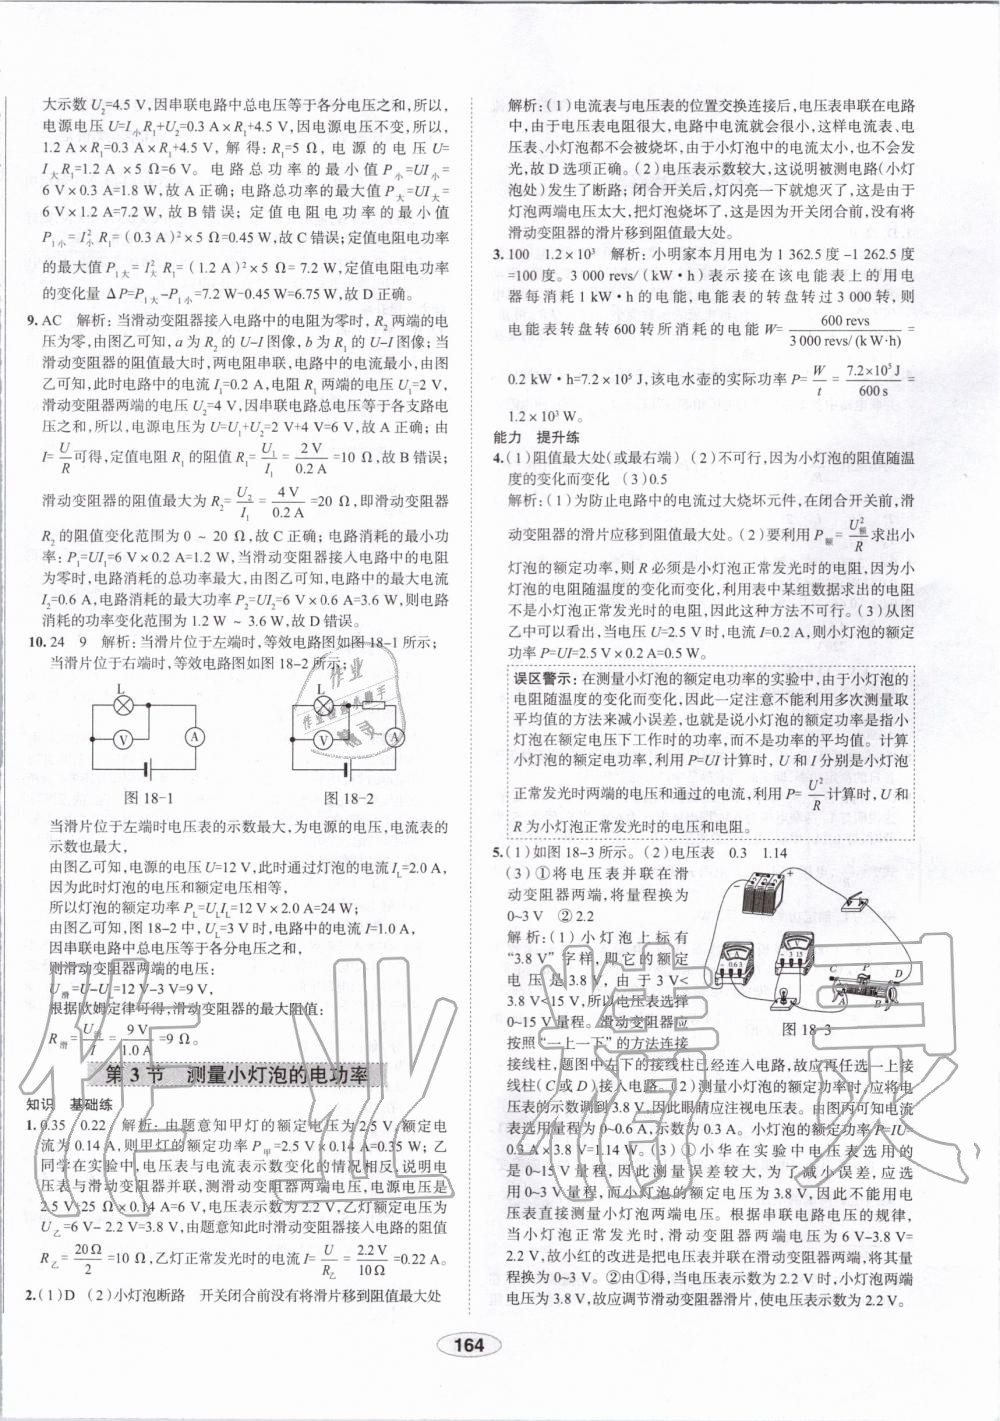 大示数U₂=4.5 V,因串联电路中总电压等于各分电压之和,所以,
电源电压U=I小R₁+U₂=0.3 A×R₁+4.5 V,因电源电压不变,所以,
1.2 A×R₁=0.3 A×R₁+4.5 V,解得:R₁=5 Ω,电源的电压U=
I大R₁=1.2 A×5 Ω=6 V。电路总功率的最小值P小=UI小=
6 V×0.3 A=1.8 W,故A正确;电路总功率的最大值P大=UI大=
6 V×1.2 A=7.2 W,故B错误;定值电阻电功率的最小值
P₁小=I²小R₁=(0.3 A)²×5 Ω=0.45 W,故C错误;定值电阻电功率
的最大值P₁大=I²大R₁=(1.2 A)²×5 Ω=7.2 W,定值电阻电功率
的变化量ΔP=P₁大-P₁小=7.2 W-0.45 W=6.75 W,故D正确。
9.AC 解析:当滑动变阻器接入电路中的电阻为零时,R₂两端的电
压为零,由图乙可知,a为R₂的U-I图像,b为R₁的U-I图像;当
滑动变阻器的阻值最大时,两电阻串联,电路中的电流最小,由图
乙可知,此时电路中的电流I₁=0.2 A,电阻R₁两端的电压U₁=2 V,
滑动变阻器两端的电压U₂=4 V,因串联电路总电压等于各支路电
压之和,所以,电源的电压为U=U₁+U₂=2 V+4 V=6 V,故A正确;由
I=U/R可得,定值电阻R₁的阻值R₁=U₁/I₁=2 V/0.2 A=10 Ω,故B错误;
滑动变阻器的阻值最大为R₂=U₂/I₁=4 V/0.2 A=20 Ω,即滑动变阻器
R₂的阻值变化范围为0~20 Ω,故C正确;电路消耗的最小功
率:P₁=UI₁=6 V×0.2 A=1.2 W,当滑动变阻器接入电路中的电阻
为零时,电路消耗的总功率最大,由图乙知,电路中的最大电流
I₂=0.6 A,电路消耗的最大功率P₂=UI₂=6 V×0.6 A=3.6 W,则电路
消耗的功率变化范围为1.2 W~3.6 W,故D错误。
10.24 9 解析:当滑片位于左端时,等效电路图如图18-1所示;
当滑片位于右端时,等效电路图如图18-2所示;
L
V
A
L
V
A
图18-1 图18-2
当滑片位于左端时电压表的示数最大,为电源的电压,电流表的
示数也最大,
由图乙可知,电源的电压U=12 V,此时通过灯泡的电流I_L=2.0 A,
因为此时灯泡的电压和额定电压相等,
所以灯泡的额定功率P_L=U_LI_L=12 V×2.0 A=24 W;
由图乙可知,图18-2中,U_L=3 V时,电流I=1.0 A,
因串联电路中总电压等于各分电压之和,
则滑动变阻器两端的电压:
U滑=U-U_L=12 V-3 V=9 V,
根据欧姆定律可得,滑动变阻器的最大阻值:
R滑=U滑/I=9 V/1.0 A=9 Ω。
第3节 测量小灯泡的电功率
知识 基础练
1.0.35 0.22 解析:由题意知甲灯的额定电压为2.5 V,额定电
流为0.14 A,则甲灯的额定功率P甲=2.5 V×0.14 A=0.35 W;乙
同学在实验中,电压表与电流表示数变化的情况相反,说明电
压表与滑动变阻器并联,测滑动变阻器两端电压,电源电压是
2.5 V+25 Ω×0.14 A=6 V,电压表示数为2.2 V,乙灯额定电压为
U乙=6 V-2.2 V=3.8 V,由题意知此时滑动变阻器接入电路的阻值
R乙=20 Ω/2=10 Ω,乙灯正常发光时的电流I=U/R乙=2.2 V/10 Ω=0.22 A。
2.(1)D (2)小灯泡断路 开关闭合前没有将滑片移到阻值最大处
解析:(1)电流表与电压表的位置交换连接后,电压表串联在电路
中,由于电压表电阻很大,电路中电流就会很小,这样电流表、电
压表、小灯泡都不会被烧坏,由于小灯泡中的电流太小,也不会发
光,故D选项正确。(2)电压表示数较大,这说明被测电路(小灯
泡处)发生了断路;闭合开关后,灯闪亮一下就熄灭了,这是由于
灯泡两端电压太大,把灯泡烧坏了,这是因为开关闭合前,没有将
滑动变阻器的滑片移到阻值最大处。
3.100 1.2×10³ 解析:小明家本月用电为1 362.5度-1 262.5度
=100度。3 000 revs/(kW·h)表示接在该电能表上的用电
器每消耗1 kW·h的电能,电能表的转盘转过3 000转,则
电能表转盘转600转所消耗的电能W=600 revs/3 000 revs/(kW·h)=
0.2 kW·h=7.2×10⁵ J,该电水壶的实际功率P=W/t=7.2×10⁵ J/600 s=
1.2×10³ W。
能力 提升练
4.(1)阻值最大处(或最右端) (2)不可行,因为小灯泡的阻值随温
度的变化而变化 (3)0.5
解析:(1)为防止电路中的电流过大烧坏元件,在闭合开关前,滑
动变阻器的滑片应移到阻值最大处。(2)要利用P额=U²额/R求出小
灯泡的额定功率,则R必须是小灯泡正常发光时的电阻,因为小
灯泡的电阻随温度的变化而变化,利用表中某组数据求出的电阻
不是小灯泡正常发光时的电阻,因此这种方法不可行。(3)从图
乙中可以看出,当电压U=2.5 V时,电流I=0.2 A,则小灯泡的额定
功率P=UI=2.5 V×0.2 A=0.5 W。
误区警示:在测量小灯泡的额定电功率的实验中,由于小灯泡的
电阻随温度的变化而变化,因此一定注意不能利用多次测量取
平均值的方法来减小误差,也就是说小灯泡的额定功率是指小
灯泡在额定电压下工作时的功率,而不是功率的平均值。计算
小灯泡的额定电功率,利用P=UI计算时,U和I分别是小灯泡
正常发光时两端的电压和通过的电流,利用P=U²/R计算时,U和
R为小灯泡正常发光时的电压和电阻。
5.(1)如图18-3所示。(2)电压表 0.3 1.14
(3)①将电压表并联在滑
动变阻器两端,将量程换为
0~3 V ②2.2
解析:(1)小灯泡上标有
“3.8 V”字样,即它的额定
电压是3.8 V,由于3 V<
3.8 V<15 V,所以电压表选择
0~15 V量程。滑动变阻器应
按照“一上一下”的方法连接
图18-3
接线柱,题图中下面的接线柱已经连入电路,故应再任选一上接
线柱(C或D)接入电路。(2)测量小灯泡的额定功率时,应将电
压表的示数调到3.8 V,因此眼睛应注视电压表。由图丙可知电流
表选用量程为0~0.6 A,示数为0.3 A。小灯泡的额定功率P=IU=
0.3 A×3.8 V=1.14 W。(3)①小华在实验中电压表选用的
是0~15 V量程,因此测量误差较大,为了减小误差,应选
用0~3 V量程,而小灯泡的额定电压为3.8 V,因此不能用电
压表直接测量小灯泡两端电压。根据串联电路电压的规律,
当小灯泡正常发光时,滑动变阻器两端电压为6 V-3.8 V=
2.2 V,故小红的改进是把电压表并联在滑动变阻器两端,将其量
程换为0~3 V。②由①得,当电压表示数为2.2 V时,小灯泡两端
电压为3.8 V,故应调节滑动变阻器滑片,使电压表示数为2.2 V。
164